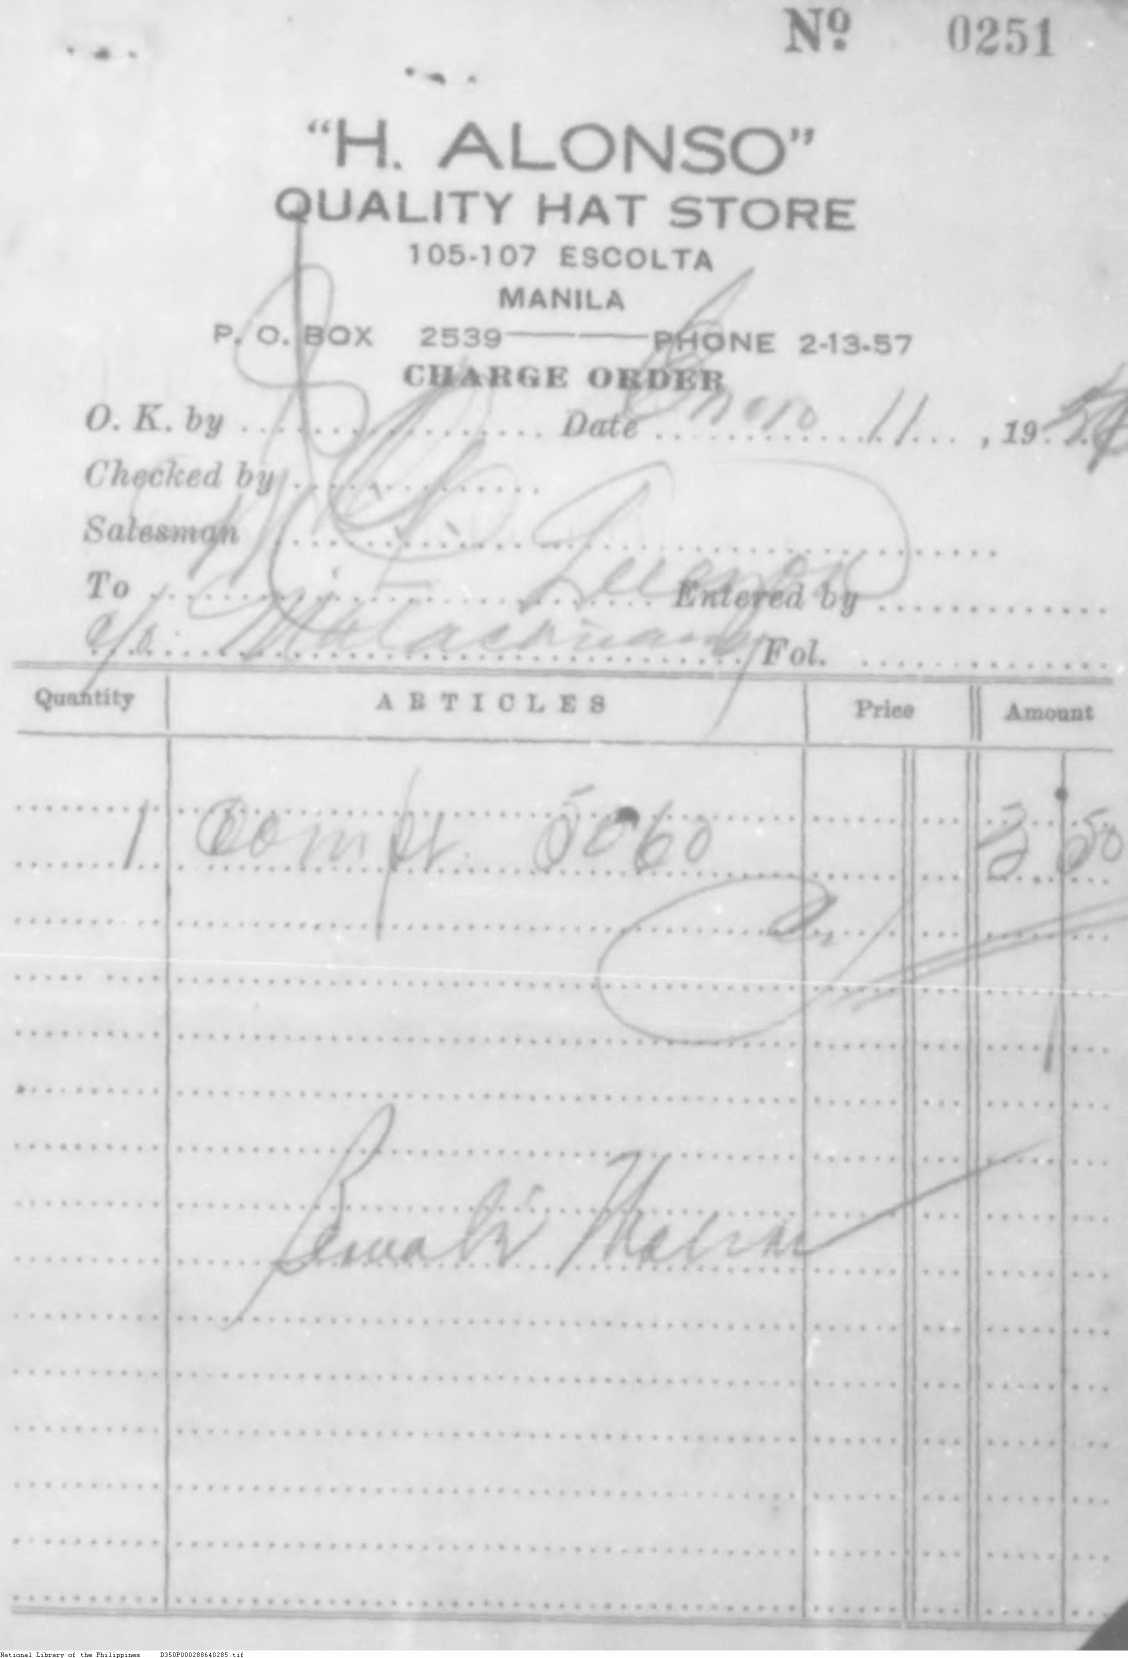 Nº 0251
"H. ALONSO"
QUALITY HAT STORE
105-107 ESCOLTA
MANILA
P. O. BOX 2539 PHONE 2-13-57
CHARGE ORDER
O. K. by Date Enero 11, 19
Checked by
Salesman
To Entered by
c/o Malacañang Fol.
Quantity ARTICLES Price Amount
1 5060 2 50
National Library of the Philippines D350P000288640285.tif